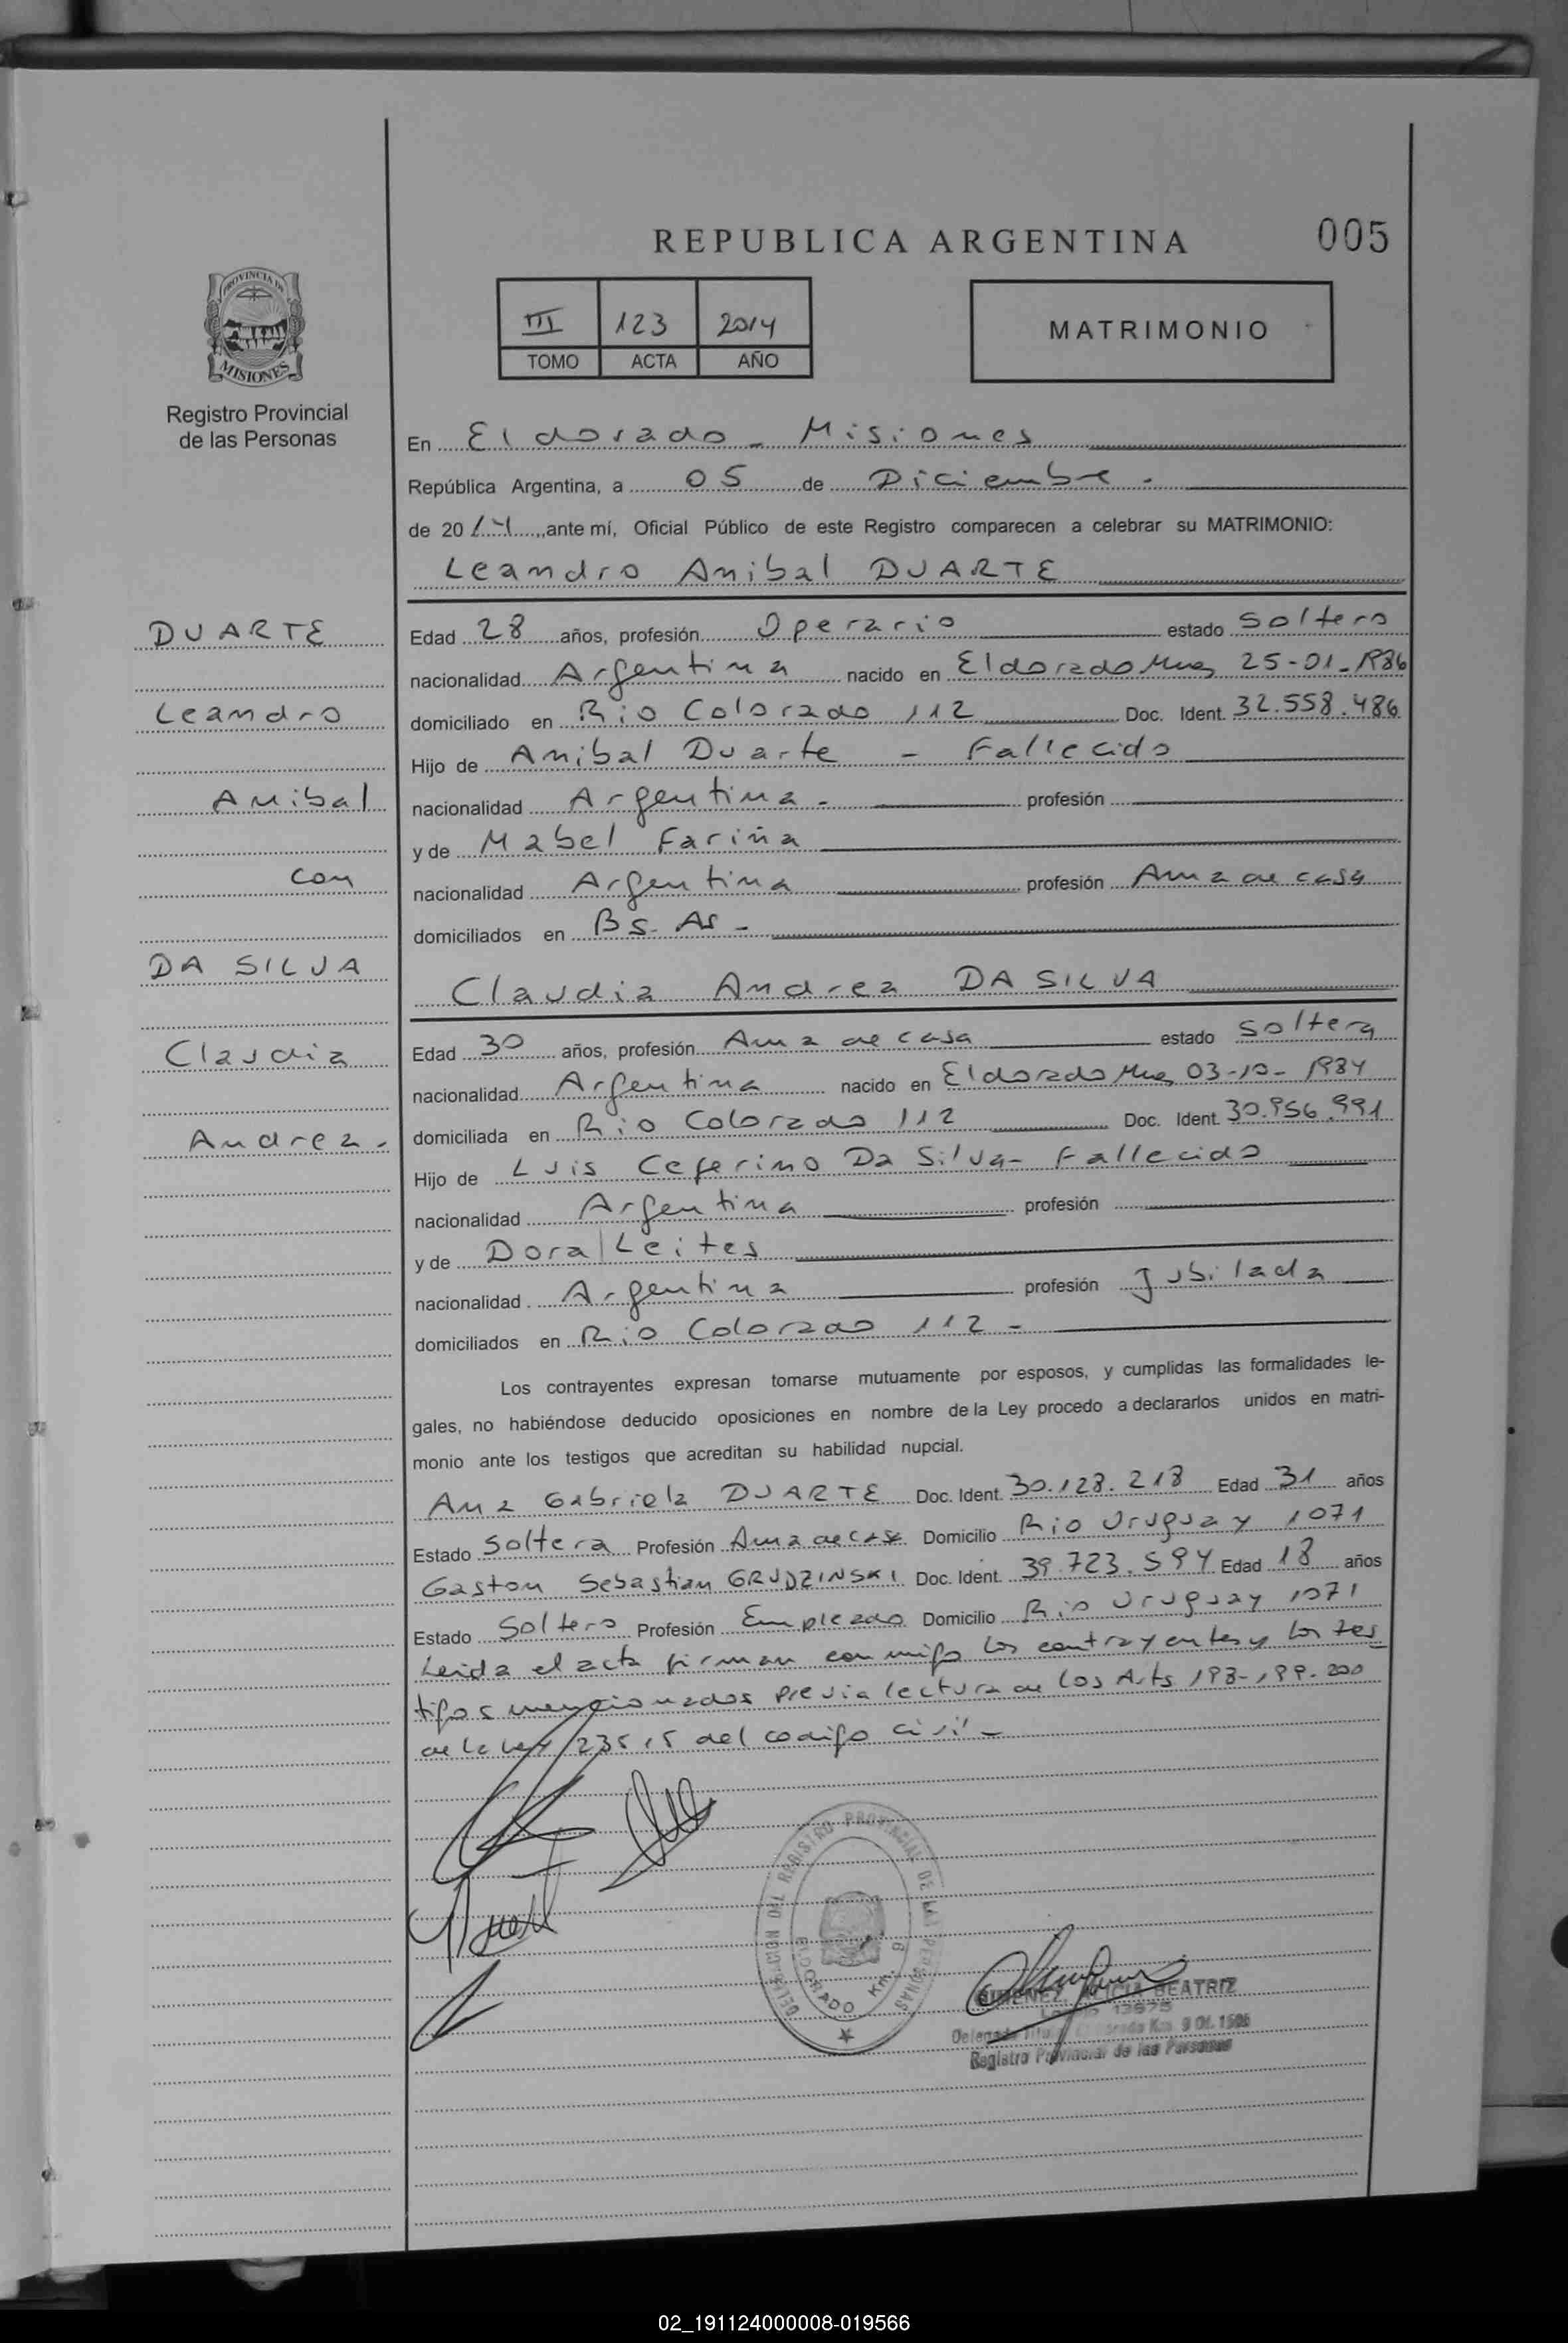 REPUBLICA ARGENTINA
005
PROVINCIA DE
MISIONES
Registro Provincial
de las Personas
III 123 2014
TOMO ACTA AÑO
MATRIMONIO
En Eldorado - Misiones
República Argentina, a 05 de Diciembre .
de 2014, ante mí, Oficial Público de este Registro comparecen a celebrar su MATRIMONIO:
Leandro Anibal DUARTE
DUARTE
Leandro
Anibal
con
DA SILVA
Claudia
Andrea.
Edad 28 años, profesión Operario estado Soltero
nacionalidad Argentina nacido en Eldorado Mnes 25-01-1986
domiciliado en Rio Colorado 112 Doc. Ident. 32.558.486
Hijo de Anibal Duarte - Fallecido
nacionalidad Argentina - profesión
y de Mabel Fariña
nacionalidad Argentina profesión Ama de casa
domiciliados en Bs. As -
Claudia Andrea DA SILVA
Edad 30 años, profesión Ama de casa estado soltera
nacionalidad Argentina nacido en Eldorado Mnes 03-10-1984
domiciliada en Rio Colorado 112 Doc. Ident. 30.956.991
Hijo de Luis Ceferino Da Silva - Fallecido
nacionalidad Argentina profesión
y de Dora Leites
nacionalidad Argentina profesión Jubilada
domiciliados en Rio Colorado 112 -
Los contrayentes expresan tomarse mutuamente por esposos, y cumplidas las formalidades le-
gales, no habiéndose deducido oposiciones en nombre de la Ley procedo a declararlos unidos en matri-
monio ante los testigos que acreditan su habilidad nupcial.
Ana Gabriela DUARTE Doc. Ident. 30.128.218 Edad 31 años
Estado Soltera Profesión Ama de casa Domicilio Rio Uruguay 1071
Gaston Sebastian GRUDZINSKI Doc. Ident. 39.723.594 Edad 18 años
Estado Soltero Profesión Empleado Domicilio Rio Uruguay 1071
Leida el acta firman conmigo los contrayentes y los tes
tigos mencionados previa lectura de los Arts 198-199-200
de la ley 23515 del codigo civil -
DELEGACION DEL REGISTRO PROVINCIAL DE LAS PERSONAS
ELDORADO Km. 9
GIMENEZ, ALICIA BEATRIZ
Delegada Titular Eldorado Km. 9 Of. 1506
Registro Provincial de las Personas
02_191124000008-019566